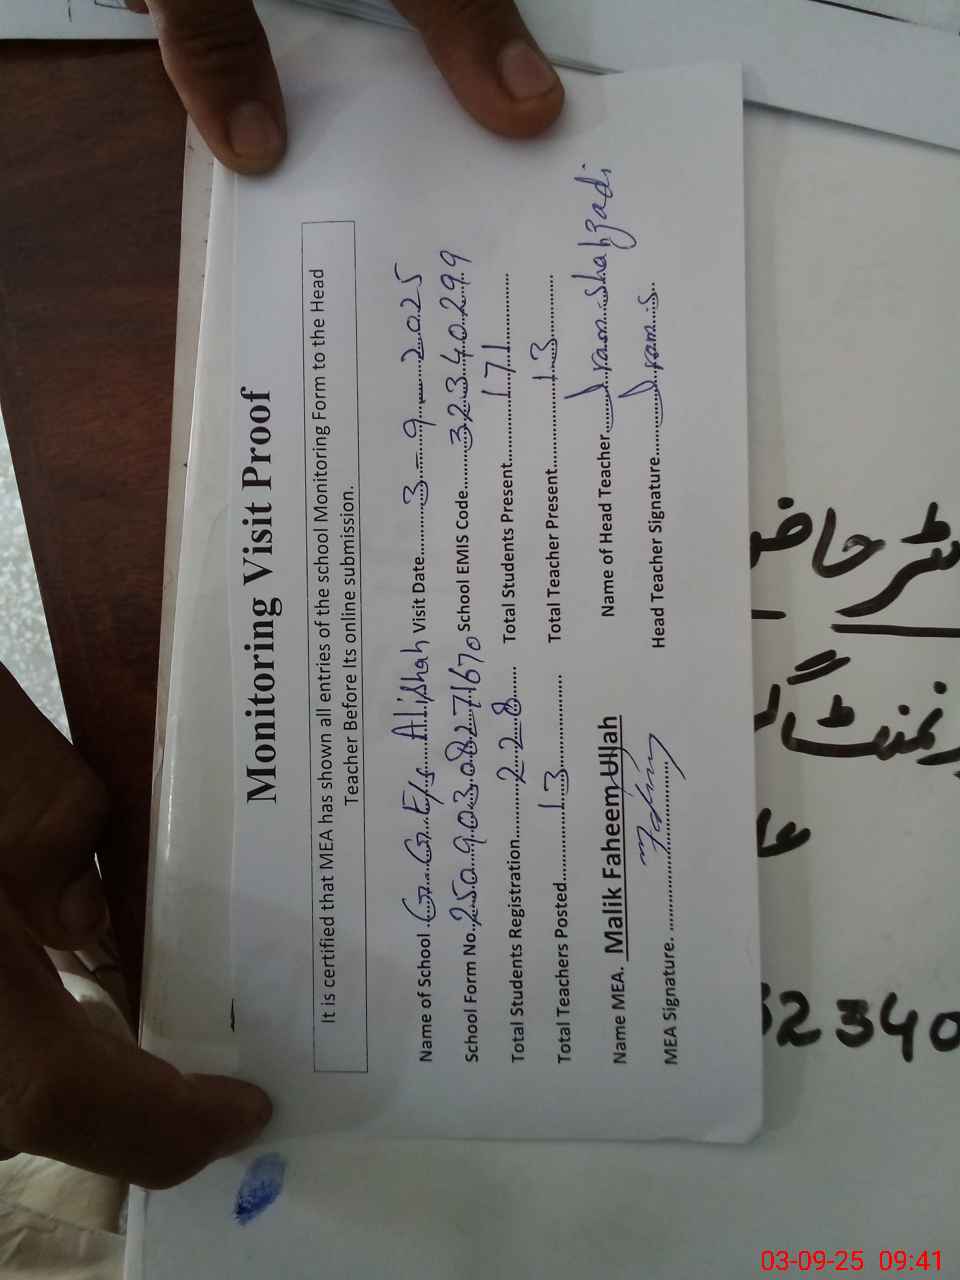 Monitoring Visit Proof
It is certified that MEA has shown all entries of the school Monitoring Form to the Head
Teacher Before Its online submission.
Name of School G.G.E/s Alishah Visit Date 3-9-2025
School Form No. 25090308271670 School EMIS Code 32340299
Total Students Registration 228 Total Students Present 171
Total Teachers Posted 13 Total Teacher Present 13
Name MEA. Malik Faheem Ullah Name of Head Teacher Iram Shahzadi
MEA Signature. Head Teacher Signature Iram.S
32340
03-09-25 09:41